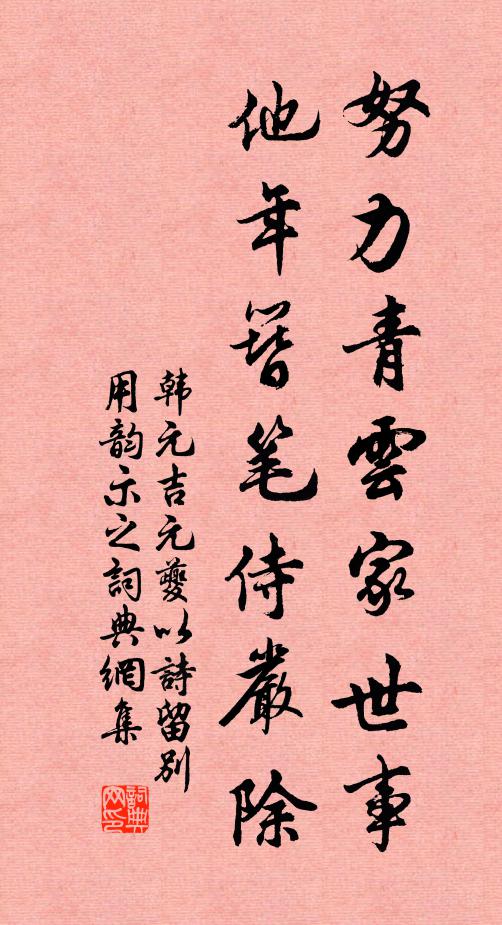 努力青雲家世事
他年簪笔侍嚴除
韩元吉元夔以詩留别
用韵示之詞典網集
詞典网印